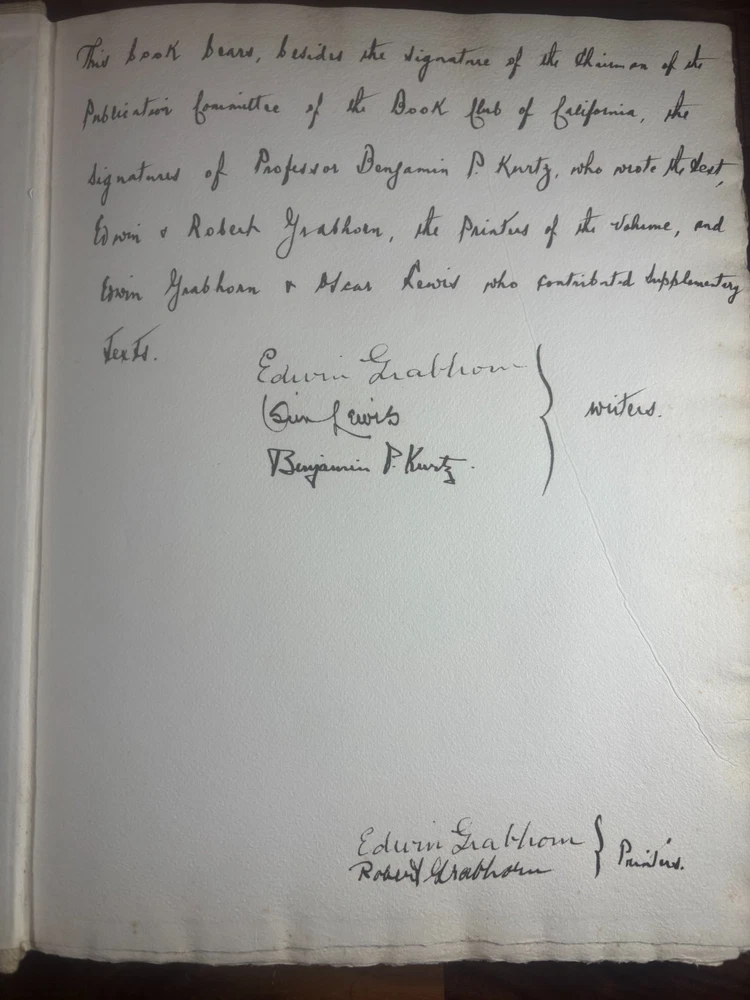 This book bears, besides the signature of the Chairman of the
Publication Committee of the Book Club of California, the
signatures of Professor Benjamin P. Kurtz, who wrote the text,
Edwin & Robert Grabhorn, the Printers of the volume, and
Edwin Grabhorn & Oscar Lewis who contributed supplementary
texts.
Edwin Grabhorn
Oscar Lewis
Benjamin P. Kurtz.
writers.
Edwin Grabhorn
Robert Grabhorn
Printers.